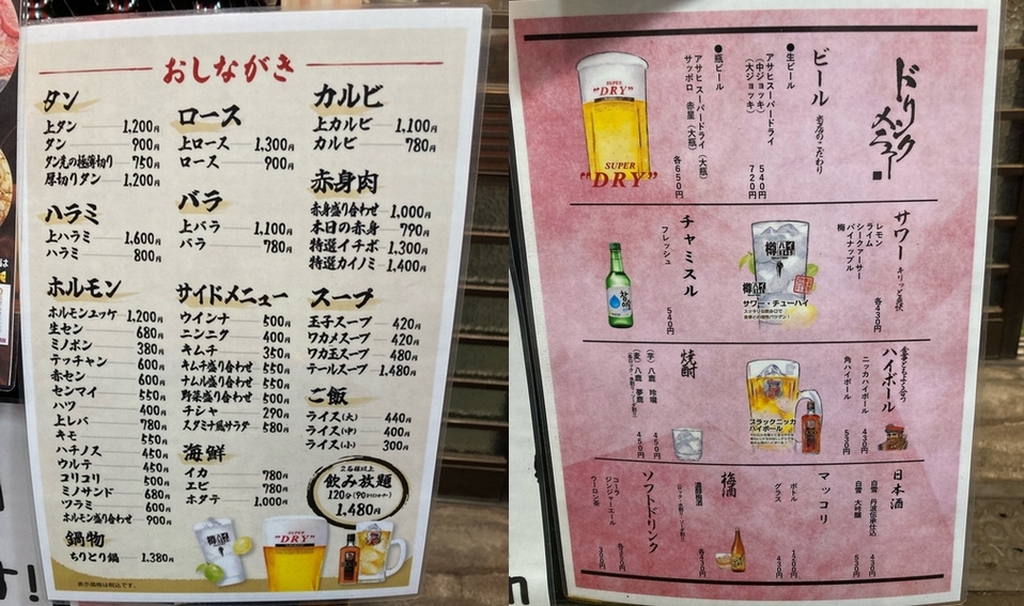 おしながき
タン
上タン 1,200円
タン 900円
タン先の極薄切り 750円
厚切りタン 1,200円
ハラミ
上ハラミ 1,600円
ハラミ 800円
ホルモン
ホルモンユッケ 1,200円
生セン 680円
ミノポン 380円
テッチャン 600円
赤セン 600円
センマイ 550円
ハツ 400円
上レバ 780円
キモ 550円
ハチノス 450円
ウルテ 450円
コリコリ 500円
ミノサンド 680円
ツラミ 600円
ホルモン盛り合わせ 900円
鍋物
ちりとり鍋 1,380円
表示価格は税込です。
ロース
上ロース 1,300円
ロース 900円
バラ
上バラ 1,100円
バラ 780円
サイドメニュー
ウインナ 500円
ニンニク 400円
キムチ 350円
キムチ盛り合わせ 550円
ナムル盛り合わせ 550円
野菜盛り合わせ 500円
チシャ 290円
スタミナ風サラダ 580円
海鮮
イカ 780円
エビ 780円
ホタテ 1,000円
カルビ
上カルビ 1,100円
カルビ 780円
赤身肉
赤身盛り合わせ 1,000円
本日の赤身 790円
特選イチボ 1,300円
特選カイノミ 1,400円
スープ
玉子スープ 420円
ワカメスープ 420円
ワカ玉スープ 480円
テールスープ 1,480円
ご飯
ライス(大) 440円
ライス(中) 400円
ライス(小) 300円
2名様以上
飲み放題
120分(90分ラストオーダー)
1,480円
SUPER
"DRY"
ドリンク
メニュー
ビール 当店のこだわり
●生ビール
アサヒスーパードライ
(中ジョッキ) 540円
(大ジョッキ) 720円
●瓶ビール
アサヒスーパードライ(大瓶)
サッポロ 赤星(大瓶)
各650円
SUPER
"DRY"
SUPER
"DRY"
サワー キリッと爽快
レモン
ライム
シークァーサー
パイナップル
梅
各430円
樽ハイ
サワー・チューハイ
チャミスル
フレッシュ 540円
ハイボール
食事ともよく合う
ニッカハイボール 430円
角ハイボール 530円
ブラックニッカ
ハイボール
焼酎
(芋)八鹿 玲瓏 450円
(麦)八鹿 夢鹿 450円
日本酒
白雪 丹波伝承仕込 430円
白雪 大吟醸 530円
マッコリ
ボトル
グラス 430円
梅酒
各430円
ソフトドリンク
コーラ
ジンジャーエール
ウーロン茶